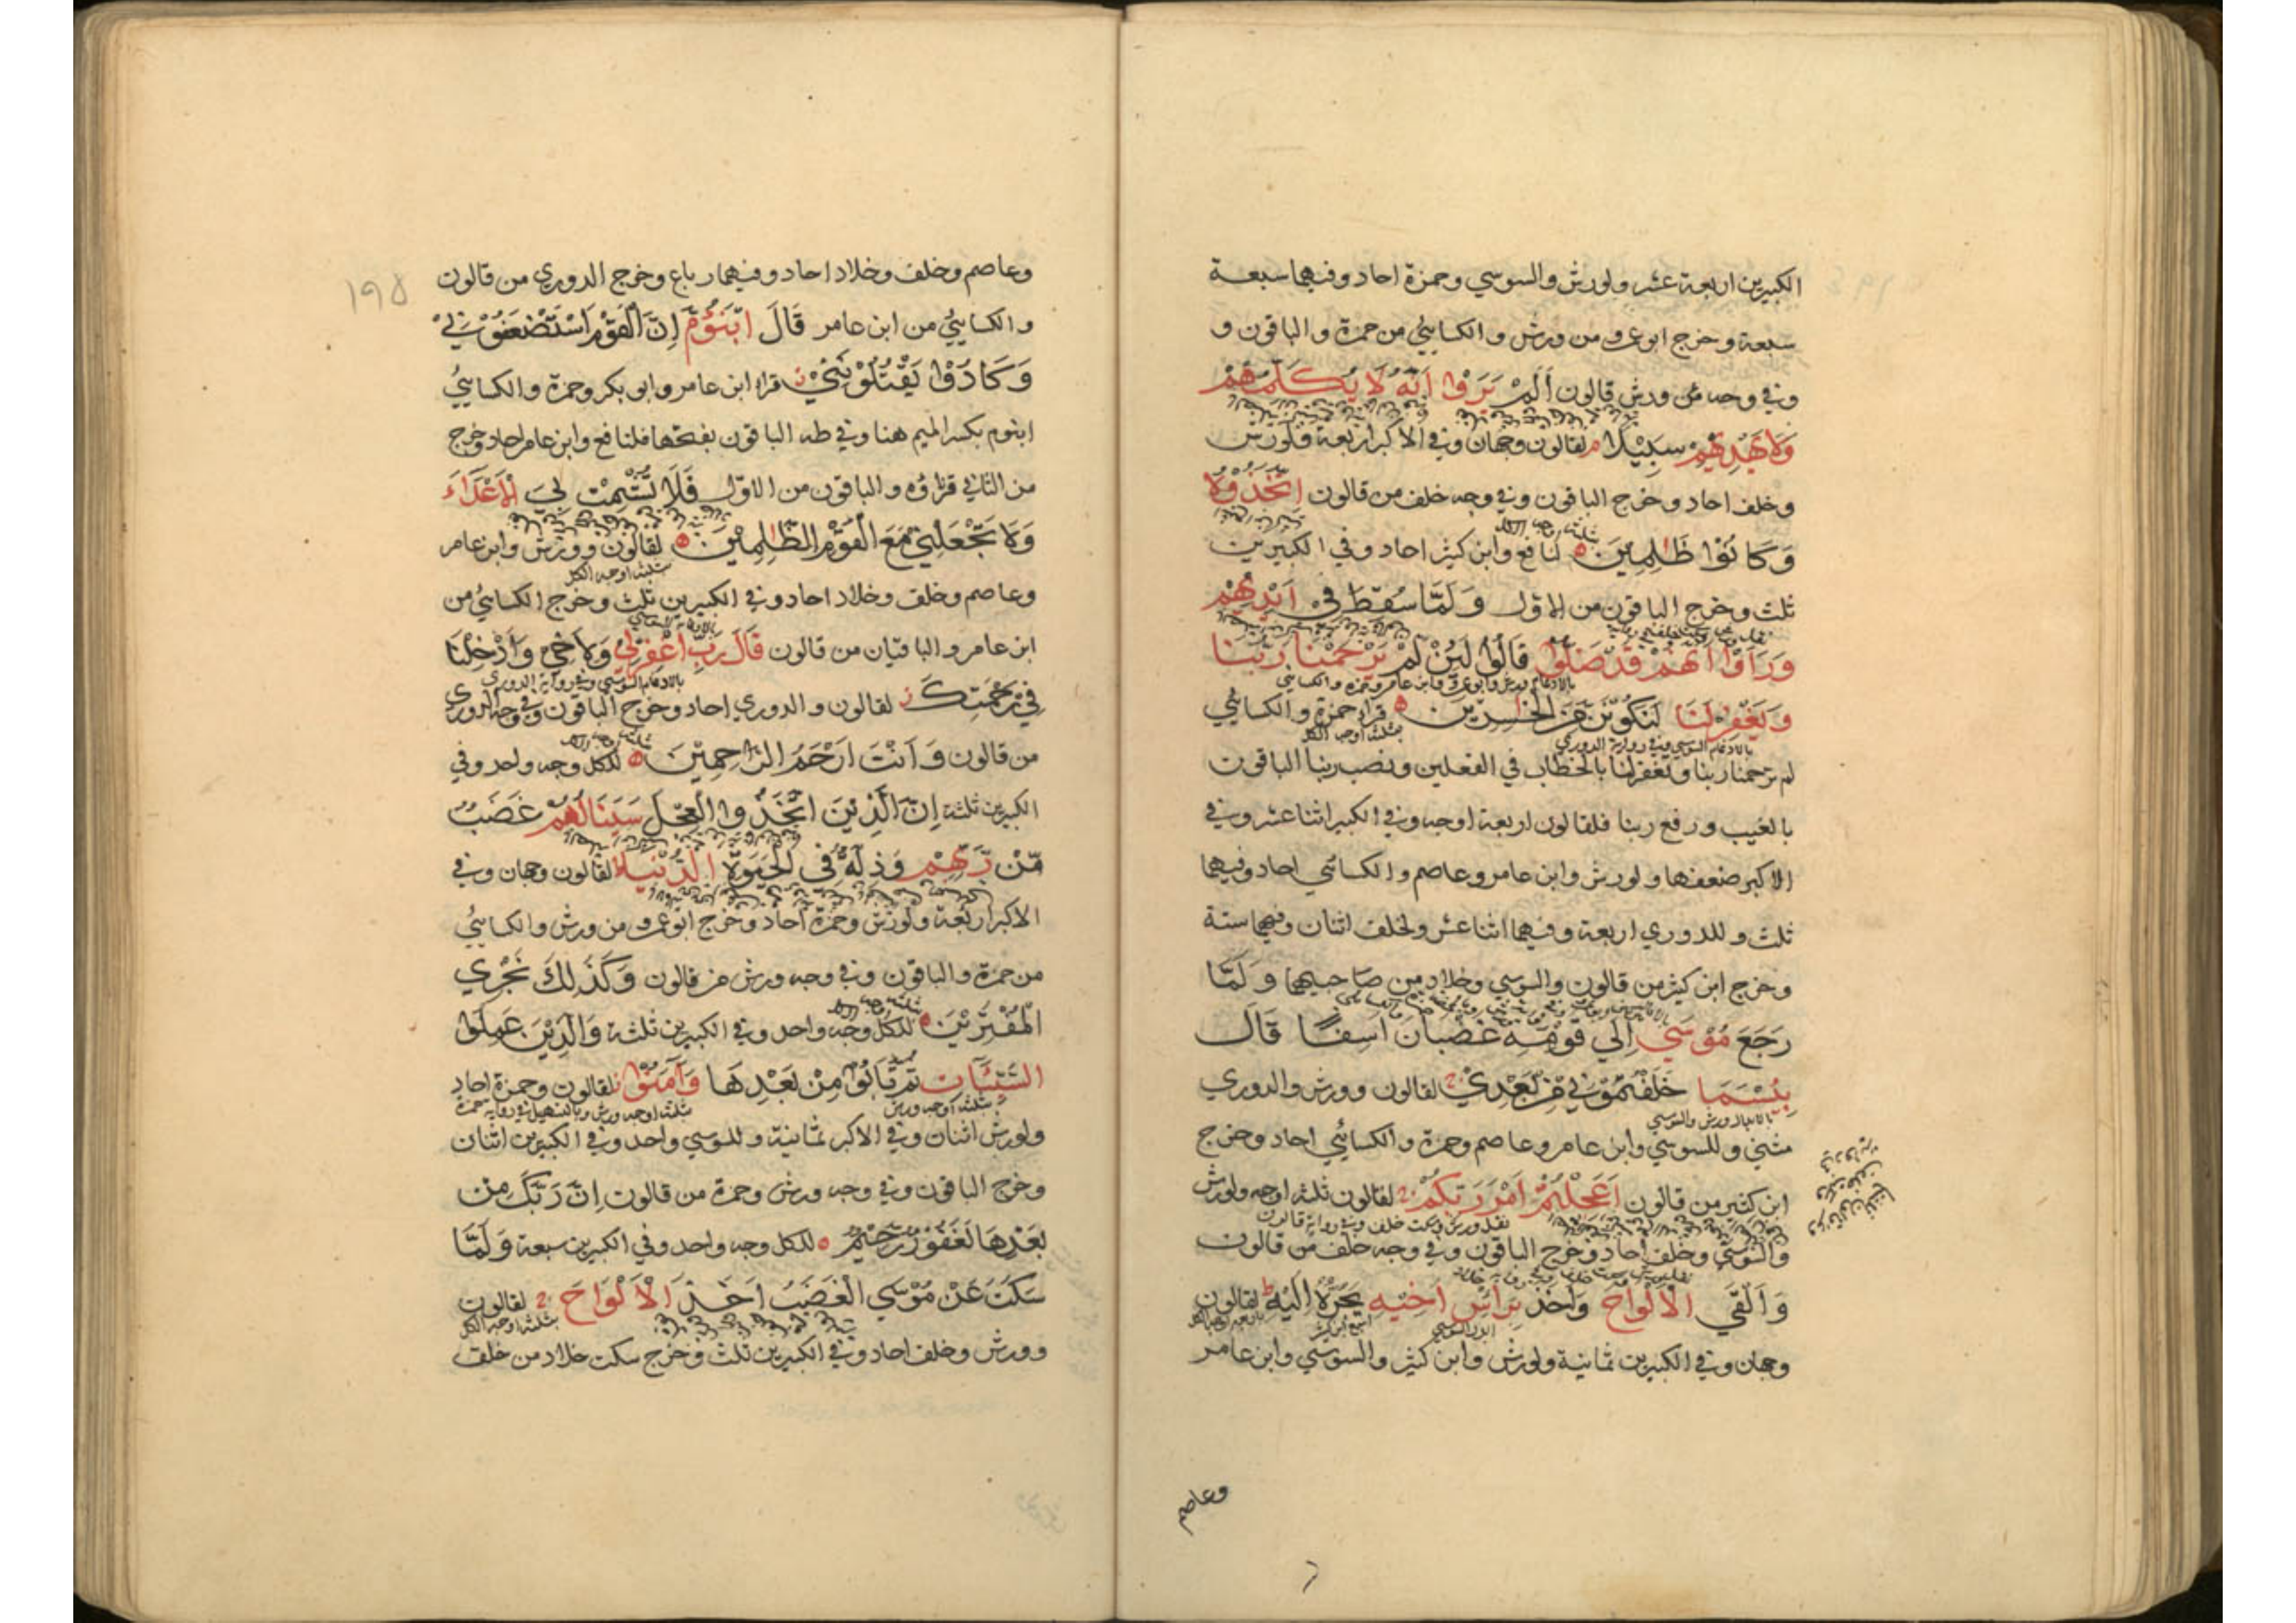 الكبيرين اربعة عشر ولورش والسوسي وحمزة احاد وفيهما سبعة
سبعة وخرج ابو عمرو من ورش والكسائي من حمزة والباقون و
وفي وجه من ورش قالون اَلَمْ يَرَوْا اَنَّهُ لَا يُكَلِّمُهُمْ
وَلَا يَهْدِيْهِمْ سَبِيْلًا م لقالون وجهان وفي الاكبر اربعة ولورش
وخلف احاد وخرج الباقون وفي وجه خلف من قالون اِتَّخَذُوْهُ
وَكَانُوْا ظٰلِمِيْنَ لنافع وابن كثير احاد وفي الكبيرين
ثلثة اوجه الكل
ثلث وخرج الباقون من الاول وَلَمَّا سُقِطَ فِيْ اَيْدِيْهِمْ
وَرَاَوْا اَنَّهُمْ قَدْ ضَلُّوْا قَالُوْا لَئِنْ لَمْ يَرْحَمْنَا رَبُّنَا
بالادغام لورش وابو عمرو وابن عامر وحمزة والكسائي
وَيَغْفِرْ لَنَا لَنَكُوْنَنَّ مِنَ الْخٰسِرِيْنَ قراء حمزة والكسائي
بالادغام السوسي وفي رواية الدوري
ثلثة اوجه الكل
لم ترحمنا ربنا وتغفر لنا بالخطاب في الفعلين ونصب ربنا الباقون
بالغيب ورفع ربنا فلقالون اربعة اوجه وفي الكبير اثنا عشر وفي
الاكبر ضعفها ولورش وابن عامر وعاصم والكسائي احاد وفيهما
ثلث وللدوري اربعة وفيهما اثنا عشر ولخلف اثنان وفيهما ستة
وخرج ابن كثير من قالون والسوسي وخلاد من صاحبيهما وَلَمَّا
رَجَعَ مُوْسَي اِلٰي قَوْمِهِ غَضْبَانَ اَسِفًا قَالَ
بِئْسَمَا خَلَفْتُمُوْنِيْ مِنْ بَعْدِيْ لقالون وورش والدوري
بالابدال ورش والسوسي
مثني وللسوسي وابن عامر وعاصم وحمزة والكسائي احاد وخرج
ابن كثير من قالون اَعَجِلْتُمْ اَمْرَ رَبِّكُمْ لقالون ثلثة اوجه ولورش
بنقل ورش وسكت خلف وفي رواية قالون
والسوسي وخلف احاد وخرج الباقون وفي وجه خلف من قالون
وَاَلْقَي الْاَلْوَاحَ وَاَخَذَ بِرَاْسِ اَخِيْهِ يَجُرُّهُ اِلَيْهِ لقالون
ابدال السوسي
وجهان وفي الكبيرين ثمانية ولورش وابن كثير والسوسي وابن عامر
وعاصم
١٩٥
وعاصم وخلف وخلاد احاد وفيهما رباع وخرج الدوري من قالون
والكسائيُّ من ابن عامر قَالَ ابْنَؤُمَّ اِنَّ الْقَوْمَ اسْتَضْعَفُوْنِيْ
وَكَادُوْا يَقْتُلُوْنَنِيْ قراء ابن عامر وابو بكر وحمزة والكسائيُّ
ابنوم بكسر الميم هنا وفي طه الباقون بفتحها فلنافع وابن عامر احاد وخرج
من الثاني قراؤه والباقون من الاول فَلَا تُشْمِتْ بِيَ الْاَعْدَاءَ
وَلَا تَجْعَلْنِيْ مَعَ الْقَوْمِ الظّٰلِمِيْنَ لقالون وورش وابن عامر
ثلثة اوجه الكل
وعاصم وخلف وخلاد احاد وفي الكبيرين ثلث وخرج الكسائي من
ابن عامر والباقيان من قالون قَالَ رَبِّ اغْفِرْلِيْ وَلِاَخِيْ وَاَدْخِلْنَا
بالادغام السوسي وفي رواية الدوري
فِيْ رَحْمَتِكَ لقالون والدوري احاد وخرج الباقون وفي وجه الدوري
من قالون وَاَنْتَ اَرْحَمُ الرَّاحِمِيْنَ للكل وجه واحد وفي
الكبيرين ثلثة اِنَّ الَّذِيْنَ اتَّخَذُوا الْعِجْلَ سَيَنَالُهُمْ غَضَبٌ
مِّنْ رَّبِّهِمْ وَذِلَّةٌ فِي الْحَيٰوةِ الدُّنْيَا لقالون وجهان وفي
الاكبر اربعة ولورش وحمزة احاد وخرج ابو عمرو من ورش والكسائيُّ
من حمزة والباقون وفي وجه ورش من قالون وَكَذٰلِكَ نَجْزِي
الْمُفْتَرِيْنَ للكل وجه واحد وفي الكبيرين ثلثة وَالَّذِيْنَ عَمِلُوا
السَّيِّئَاتِ ثُمَّ تَابُوْا مِنْ بَعْدِهَا وَاٰمَنُوْا لقالون وحمزة احاد
ثلثة اوجه ورش
ثلثة اوجه ورش وبالتسهيل في رواية حمزة
ولورش اثنان وفي الاكبر ثمانية وللسوسي واحد وفي الكبيرين اثنان
وخرج الباقون وفي وجه ورش وحمزة من قالون اِنَّ رَبَّكَ مِنْ
بَعْدِهَا لَغَفُوْرٌ رَّحِيْمٌ للكل وجه واحد وفي الكبيرين سبعة وَلَمَّا
سَكَتَ عَنْ مُوْسَي الْغَضَبُ اَخَذَ الْاَلْوَاحَ لقالون
ثلثة اوجه الكل
وورش وخلف احاد وفي الكبيرين ثلث وخرج سكت خلاد من خلف